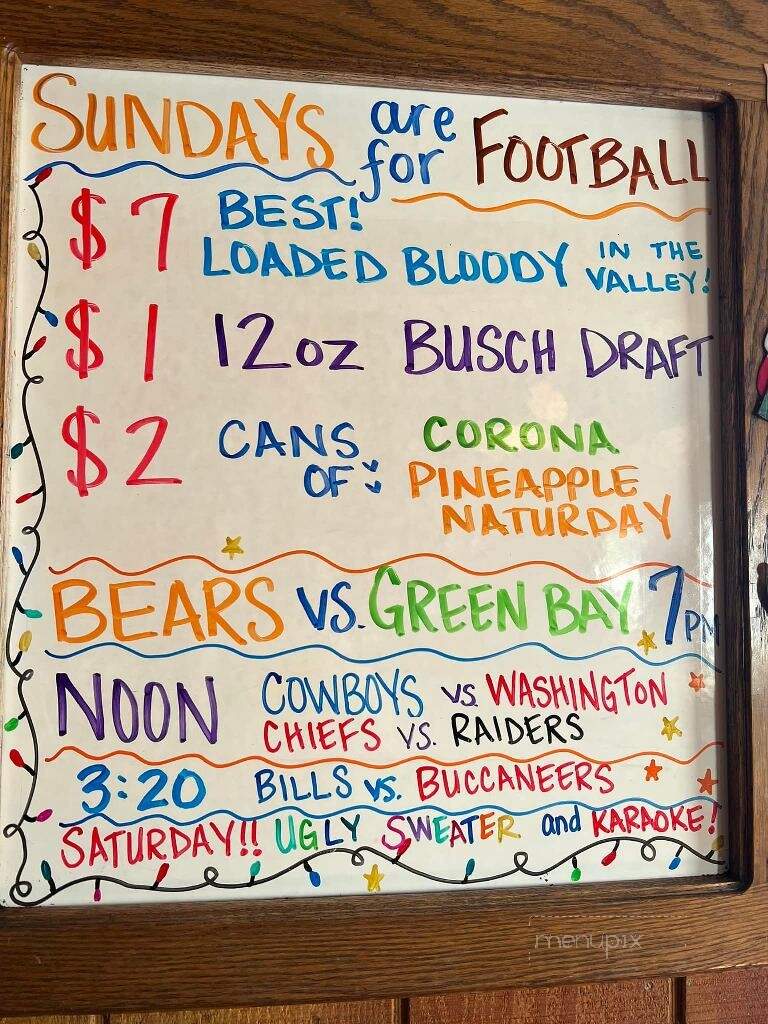 SUNDAYS are for FOOTBALL
$7 BEST! LOADED BLOODY IN THE VALLEY!
$1 12oz BUSCH DRAFT
$2 CANS OF: CORONA
PINEAPPLE
NATURDAY
BEARS VS. GREEN BAY 7PM
NOON COWBOYS VS WASHINGTON
CHIEFS VS. RAIDERS
3:20 BILLS vs. BUCCANEERS
SATURDAY!! UGLY SWEATER and KARAOKE!
menupix